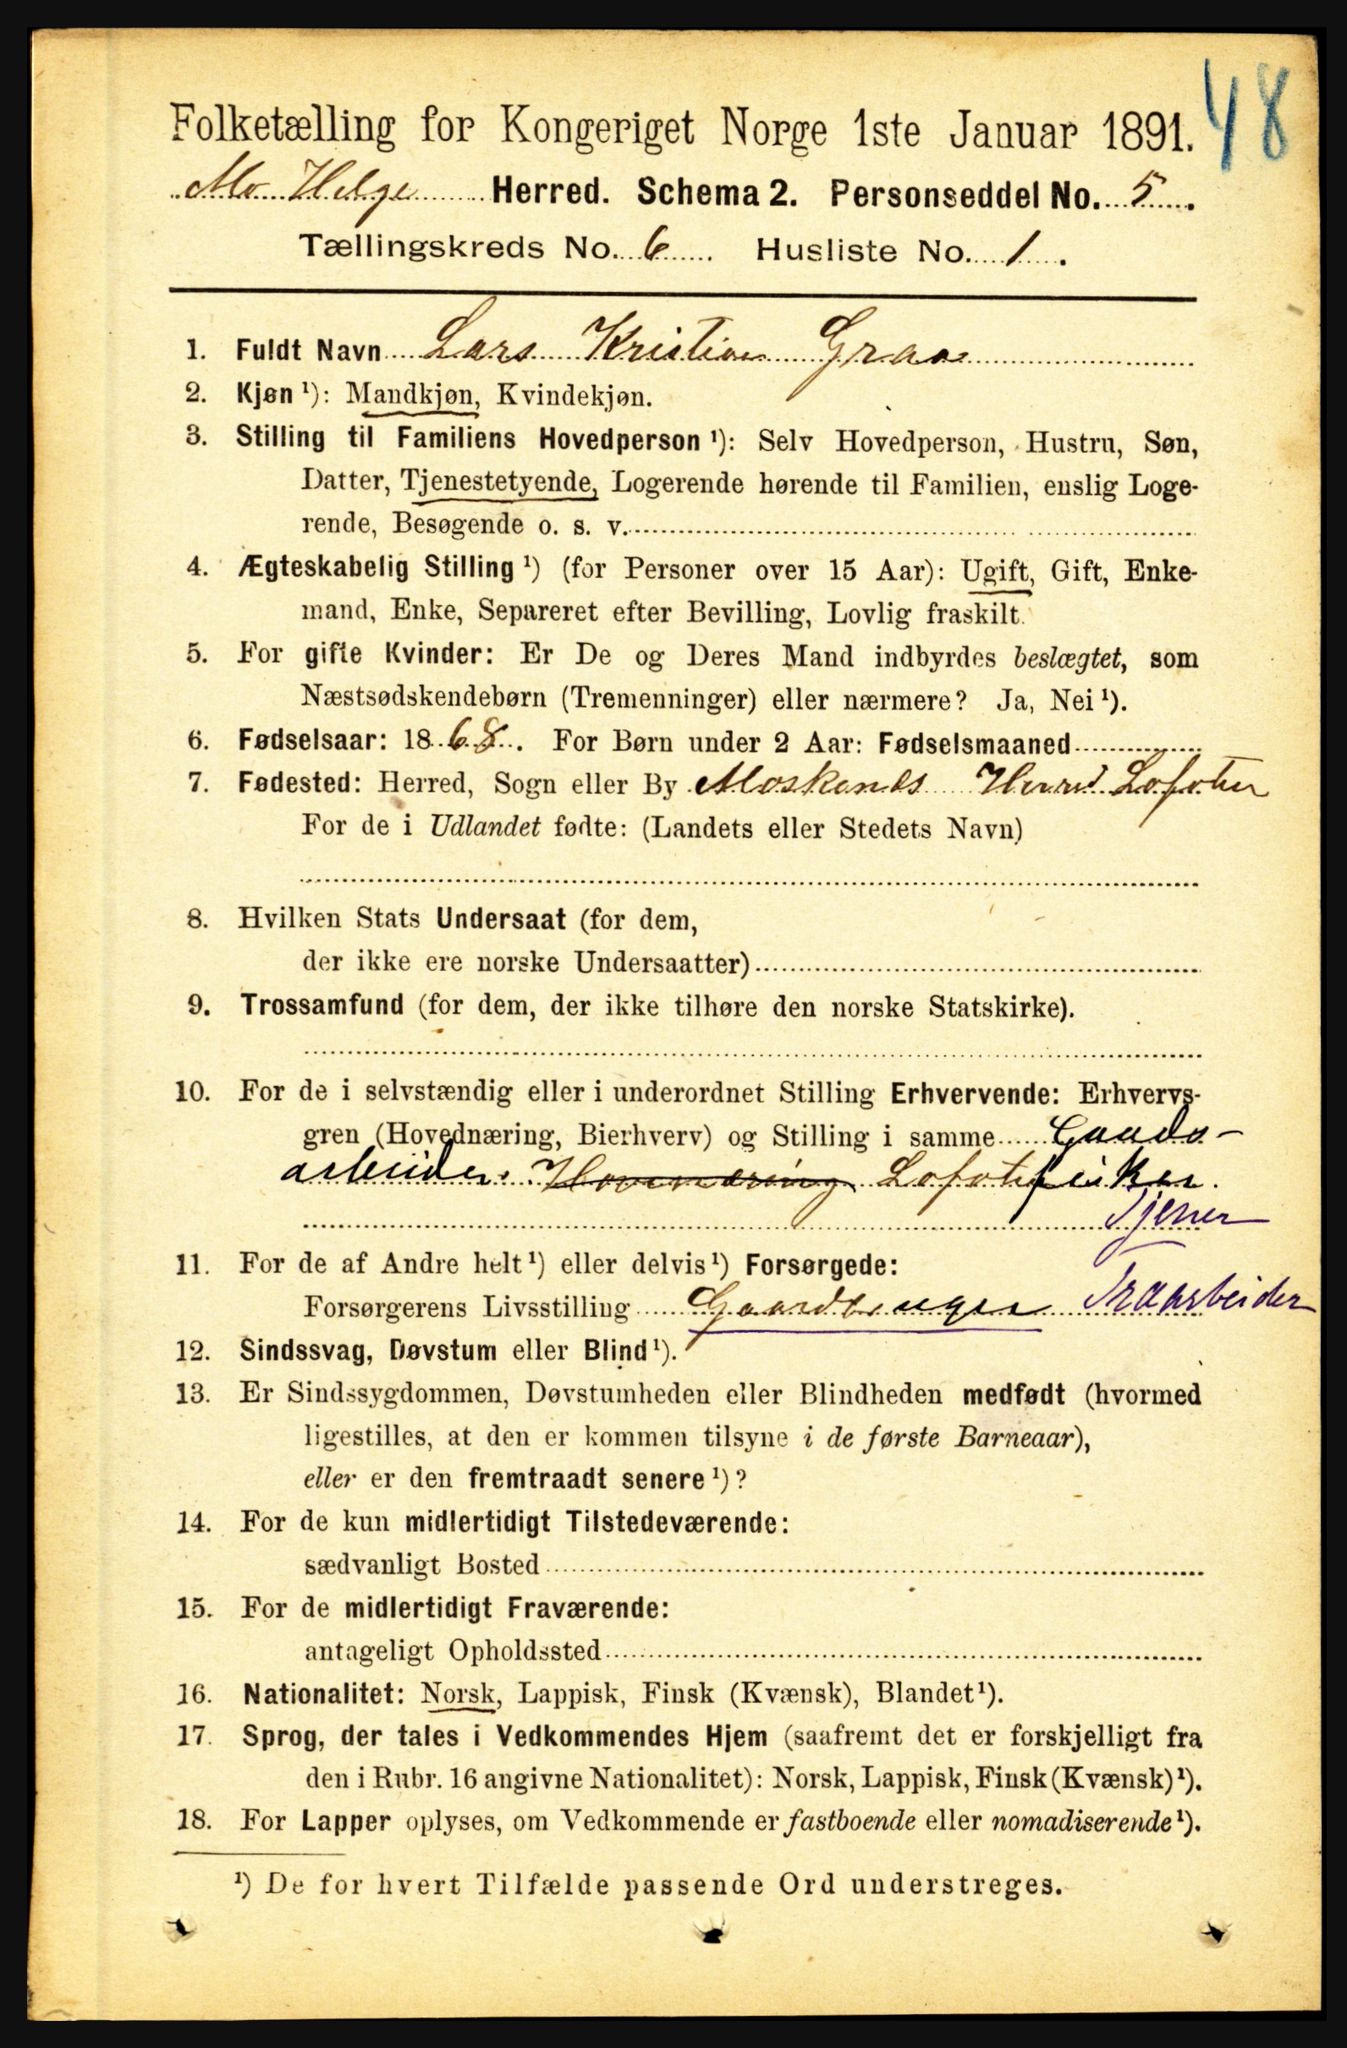 48
Folketælling for Kongeriget Norge 1ste Januar 1891.
Mo Helge Herred. Schema 2. Personseddel No. 5.
Tællingskreds No. 6 Husliste No. 1.
1. Fuldt Navn Lars Kristian Graa
2. Kjøn ¹): Mandkjøn, Kvindekjøn.
3. Stilling til Familiens Hovedperson ¹): Selv Hovedperson, Hustru, Søn,
Datter, Tjenestetyende, Logerende hørende til Familien, enslig Loge-
rende, Besøgende o. s. v.
4. Ægteskabelig Stilling ¹) (for Personer over 15 Aar): Ugift, Gift, Enke-
mand, Enke, Separeret efter Bevilling, Lovlig fraskilt.
5. For gifte Kvinder: Er De og Deres Mand indbyrdes beslægtet, som
Næstsødskendebørn (Tremenninger) eller nærmere? Ja, Nei ¹).
6. Fødselsaar: 1868. For Børn under 2 Aar: Fødselsmaaned
7. Fødested: Herred, Sogn eller By Moskenes Herred Lofoten
For de i Udlandet fødte: (Landets eller Stedets Navn)
8. Hvilken Stats Undersaat (for dem,
der ikke ere norske Undersaatter)
9. Trossamfund (for dem, der ikke tilhøre den norske Statskirke).
10. For de i selvstændig eller i underordnet Stilling Erhvervende: Erhvervs-
gren (Hovednæring, Bierhverv) og Stilling i samme Gaards-
arbeider. Hovenæring Lofotfisker.
Tjener
11. For de af Andre helt ¹) eller delvis ¹) Forsørgede:
Forsørgerens Livsstilling Gaardbruger Traarbeider
12. Sindssvag, Døvstum eller Blind ¹).
13. Er Sindssygdommen, Døvstumheden eller Blindheden medfødt (hvormed
ligestilles, at den er kommen tilsyne i de første Barneaar),
eller er den fremtraadt senere ¹)?
14. For de kun midlertidigt Tilstedeværende:
sædvanligt Bosted
15. For de midlertidigt Fraværende:
antageligt Opholdssted
16. Nationalitet: Norsk, Lappisk, Finsk (Kvænsk), Blandet ¹).
17. Sprog, der tales i Vedkommendes Hjem (saafremt det er forskjelligt fra
den i Rubr. 16 angivne Nationalitet): Norsk, Lappisk, Finsk (Kvænsk) ¹).
18. For Lapper oplyses, om Vedkommende er fastboende eller nomadiserende ¹).
¹) De for hvert Tilfælde passende Ord understreges.